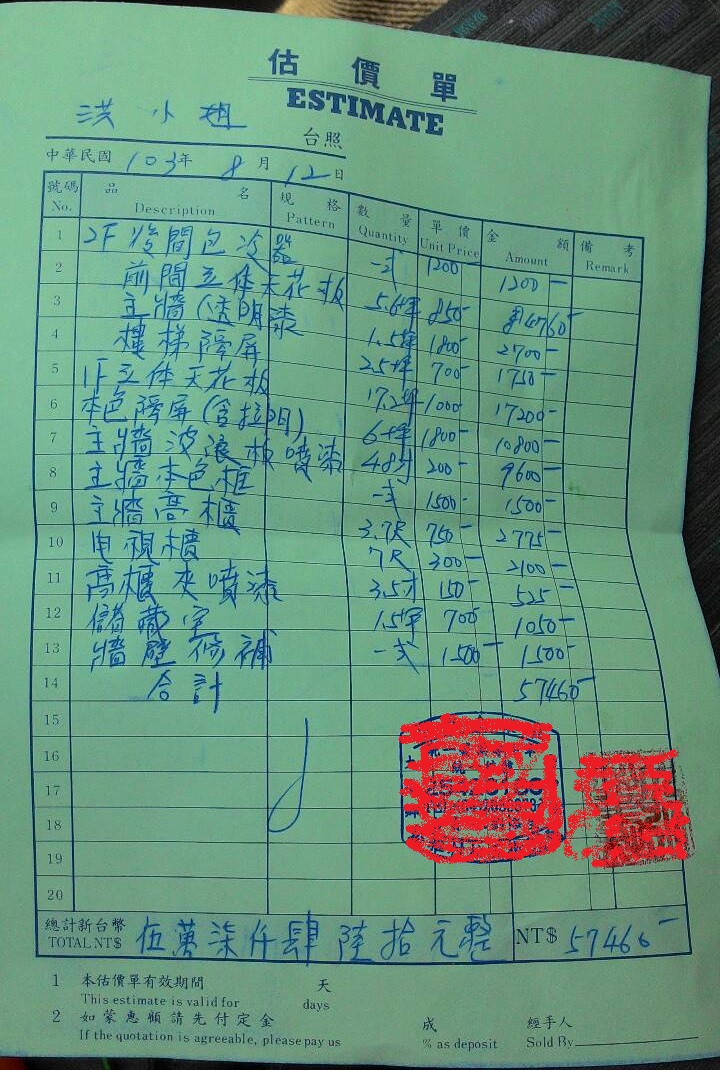 估價單
ESTIMATE
洪小姐 台照
中華民國 103年 8月 12日
號碼 No. 品名 Description 規格 Pattern 數量 Quantity 單價 Unit Price 金額 Amount 備考 Remark
1 2F後間包冷器 一式 1200- 1200-
2 前間立体天花板 5.6坪 850- 4760-
3 主牆(透明漆 1.5坪 1800- 2700-
4 樓梯隔屏 2.5坪 700- 1750-
5 1F立体天花板 17.2坪 1000- 17200-
6 本色隔屏(含拉門) 6坪 1800- 10800-
7 主牆波浪板噴漆 48才 200- 9600-
8 主牆本色框 一式 1500- 1500-
9 主牆高櫃 3.7尺 750- 2775-
10 电視櫃 7尺 300- 2100-
11 高櫃夾噴漆 3.5才 150- 525-
12 儲藏室 1.5坪 700- 1050-
13 牆壁修補 一式 1500- 1500-
14 合計 57460-
15
16
17
18
19
20
總計新台幣 TOTAL NT$ 伍萬柒仟肆陸拾元整 NT$ 57460-
1 本估價單有效期間 天
This estimate is valid for days
2 如蒙惠顧請先付定金 成 經手人
If the quotation is agreeable, please pay us % as deposit Sold By